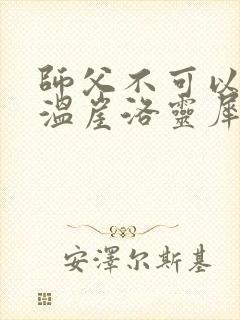 師父不可以
溫崖洛靈犀
安澤尔斯基